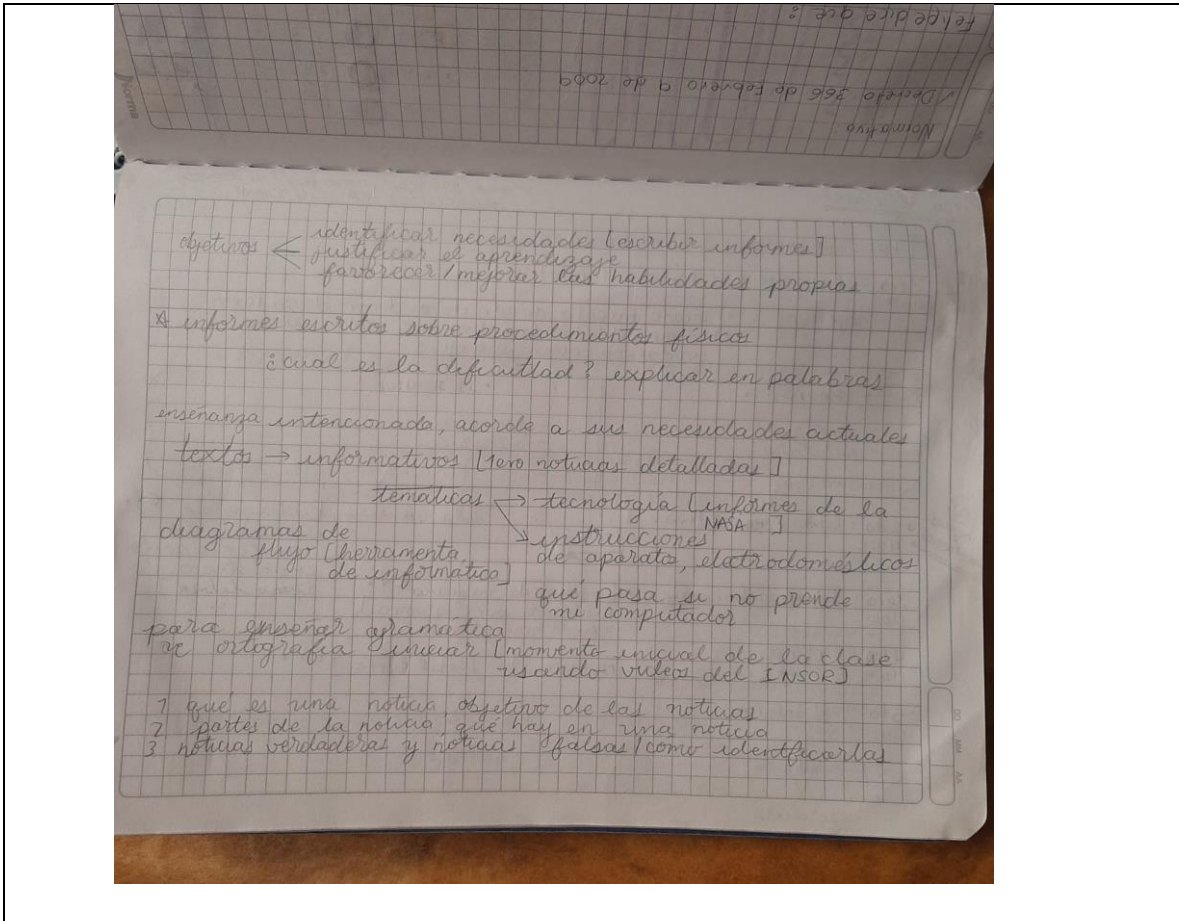 Felipe dice que :
✓ Decreto 366 de Febrero 9 de 2009
Normativo
Norma
objetivos < identificar necesidades [escribir informes]
justificar el aprendizaje
favorecer / mejorar las habilidades propias
* informes escritos sobre procedimientos físicos
¿cual es la dificultad? explicar en palabras
enseñanza intencionada, acorde a sus necesidades actuales
textos → informativos [1ero noticias detalladas]
temáticas → tecnología [informes de la
NASA ]
diagramas de ↘ instrucciones
flujo [herramienta de aparatos, electrodomésticos
de informática]
qué pasa si no prende
mi computador
para enseñar gramática
ortografía iniciar [momento inicial de la clase
usando videos del INSOR]
1 qué es una noticia objetivo de las noticias
2 partes de la noticia, qué hay en una noticia
3 noticias verdaderas y noticias falsas / cómo identificarlas
DD MM AA